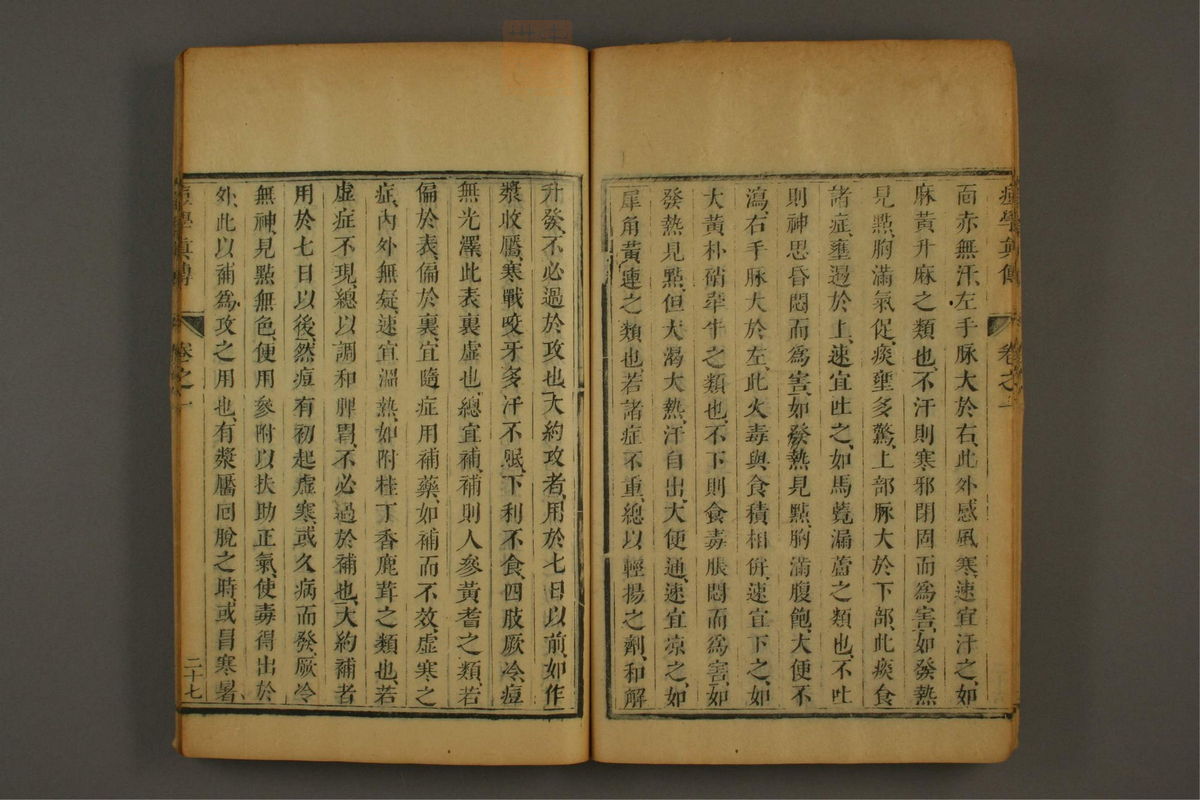 痘學眞傳 卷之一
面赤無汗、左手脉大於右、此外感風寒、速宜汗之、如
麻黃升麻之類也、不汗則寒邪閉固而爲害、如發熱
見點、胸滿氣促、痰壅多驚、上部脉大於下部、此痰食
諸症、壅遏於上、速宜吐之、如馬蔸漏蘆之類也、不吐
則神思昏悶而爲害、如發熱見點、胸滿腹飽、大便不
瀉、右手脉大於左、此火毒與食積相併、速宜下之、如
大黃朴硝牽牛之類也、不下則食毒脹悶而爲害、如
發熱見點、但大渴大熱、汗自出、大便通、速宜凉之、如
犀角黃連之類也、若諸症不重、總以輕揚之劑、和解
升發、不必過於攻也、大約攻者、用於七日以前、如作
漿收靨、寒戰咬牙、多汗不眠、下利不食、四肢厥冷、痘
無光澤、此表裏虛也、總宜補、補則人參黃耆之類、若
偏於表、偏於裏、宜隨症用補藥、如補而不效、虛寒之
症、內外無疑、速宜溫熱、如附桂丁香鹿茸之類也、若
虛症不現、總以調和脾胃、不必過於補也、大約補者
用於七日以後、然痘有初起虛寒、或久病而發、厥冷
無神、見點無色、便用參附以扶助正氣、使毒得出於
外、此以補爲攻之用也、有漿靨囘脫之時、或冒寒暑
痘學眞傳 卷之一 二十七